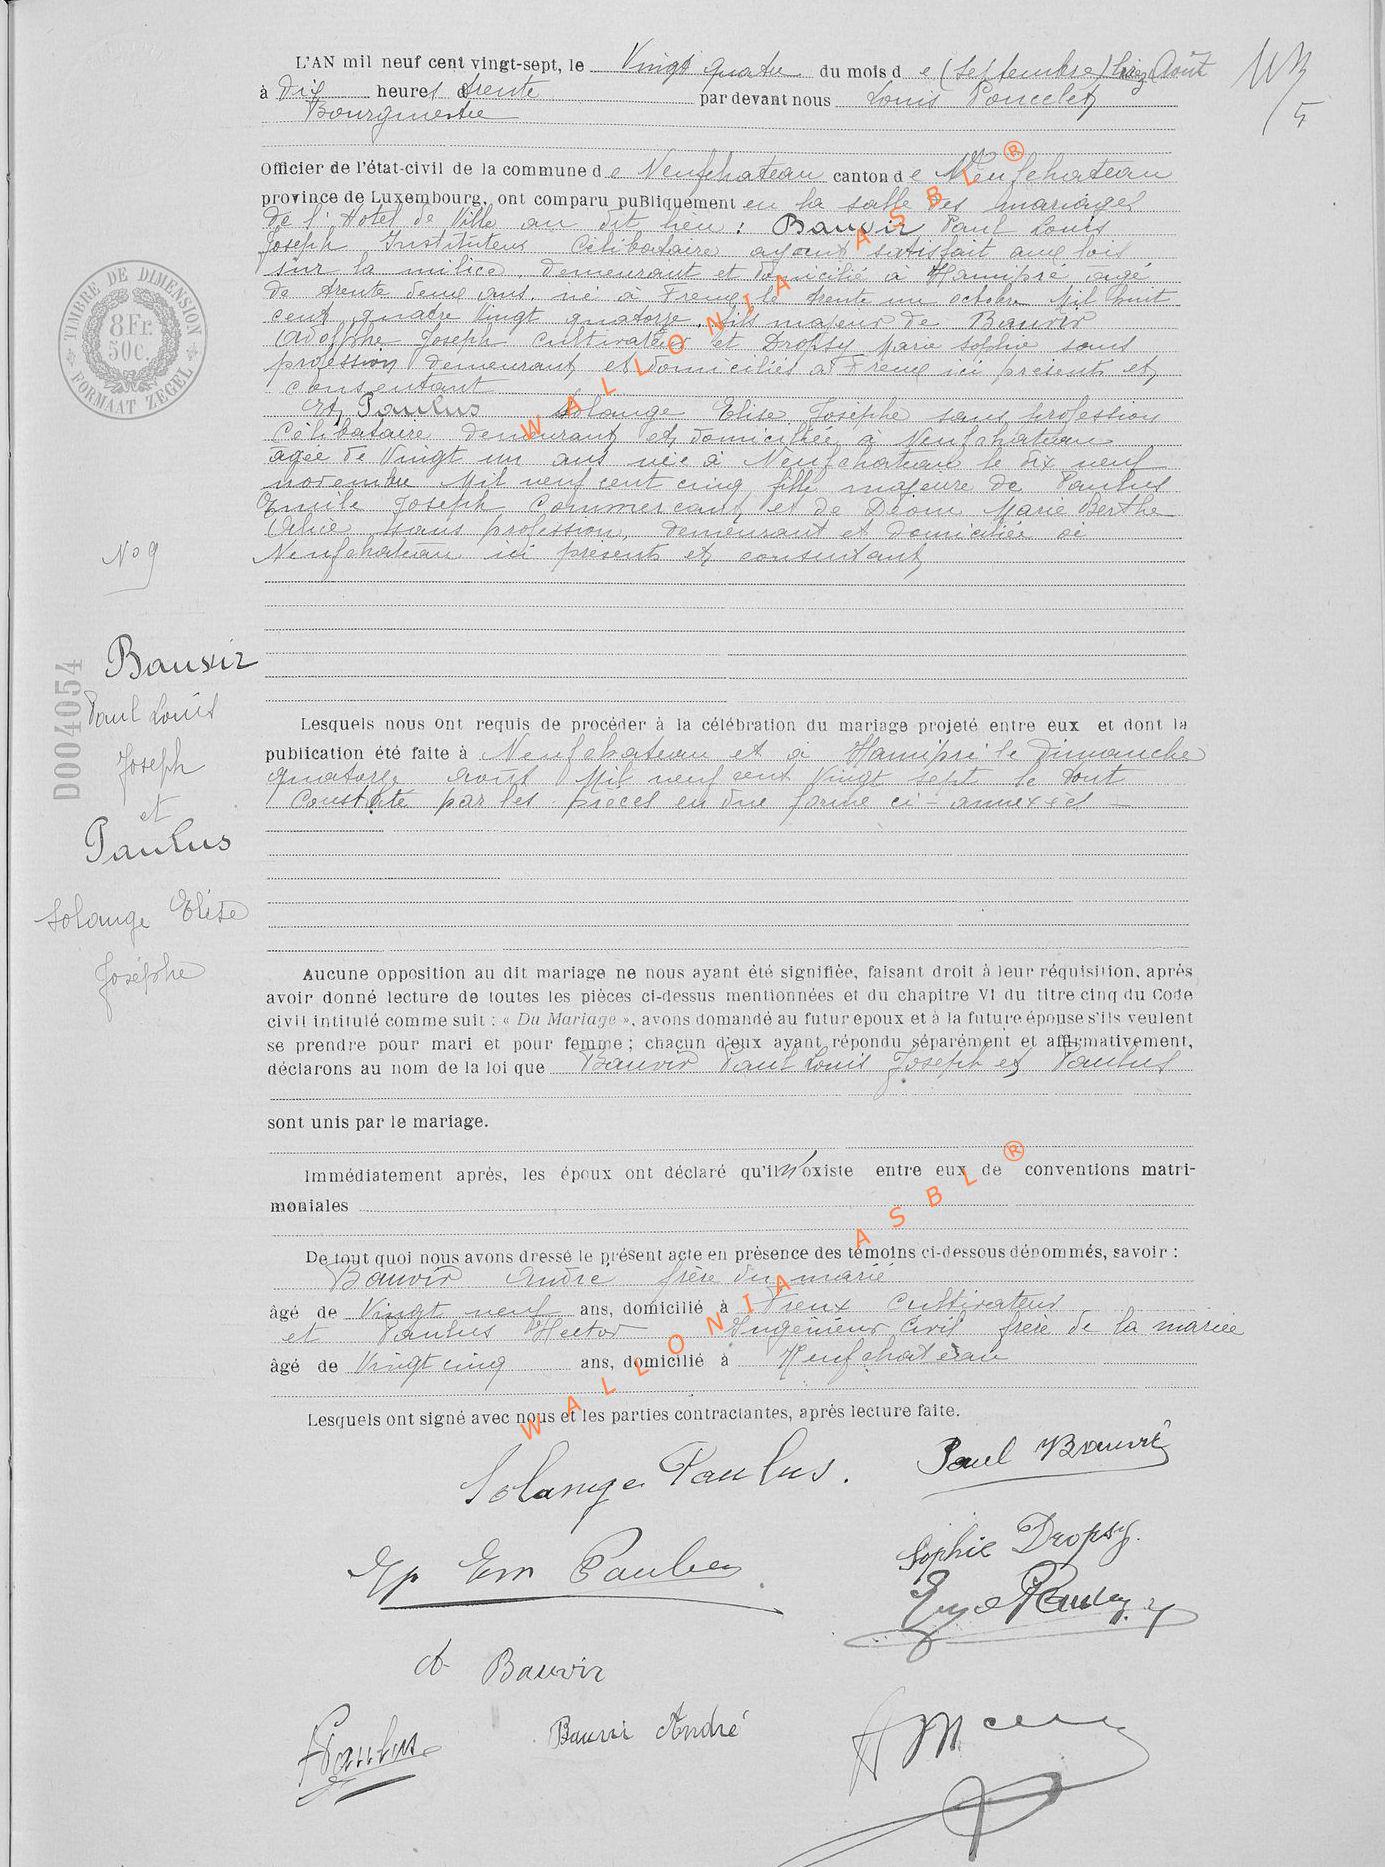 L'AN mil neuf cent vingt-sept, le Vingt quatre du mois de (septembre) Août
à Dix heures trente par devant nous Louis Poncelet
Bourgmestre
Officier de l'état-civil de la commune de Neufchateau canton de Neufchateau
province de Luxembourg, ont comparu publiquement en la salle des mariages
de l'Hotel de Ville au dit lieu : Bauvir Paul Louis
Joseph Instituteur Célibataire ayant satisfait aux lois
sur la milice, demeurant et domicilié à Hamipré agé
de trente deux ans, né à Freux le trente un octobre Mil huit
cent quatre Vingt quatorze, fils majeur de Bauvir
Adolphe Joseph Cultivateur et Dropsy Marie Sophie sans
profession demeurant et domiciliés à Freux ici présents et
consentant
Et Paulus Solange Elise Josèphe sans profession
Célibataire demeurant et domiciliée à Neufchateau
agée de Vingt un ans née à Neufchateau le dix neuf
novembre Mil neuf cent cinq, fille majeure de Paulus
Emile Joseph Commerçant et de Déom Marie Berthe
Alice sans profession, demeurant et domiciliée à
Neufchateau ici présents et consentant
No 9
Bauvir
Paul Louis
Joseph
et
Paulus
Solange Elise
Josèphe
D004054
TIMBRE DE DIMENSION
8 Fr.
50c.
FORMAAT ZEGEL
Lesquels nous ont requis de procéder à la célébration du mariage projeté entre eux et dont la
publication été faite à Neufchateau et à Hamipré le Dimanche
quatorze août Mil neuf cent Vingt sept le tout
Constaté par les pièces en due forme ci-annexées
Aucune opposition au dit mariage ne nous ayant été signifiée, faisant droit à leur réquisition, après
avoir donné lecture de toutes les pièces ci-dessus mentionnées et du chapitre VI du titre cinq du Code
civil intitulé comme suit : « Du Mariage », avons demandé au futur epoux et à la future épouse s'ils veulent
se prendre pour mari et pour femme ; chacun d'eux ayant répondu séparément et affirmativement,
déclarons au nom de la loi que Bauvir Paul Louis Joseph et Paulus
sont unis par le mariage.
Immédiatement après, les époux ont déclaré qu'il n'existe entre eux de conventions matri-
moniales
De tout quoi nous avons dressé le présent acte en présence des témoins ci-dessous dénommés, savoir :
Bauvir André frère du marié
âgé de Vingt neuf ans, domicilié à Freux Cultivateur
et Paulus Hector Ingénieur Civil frère de la mariée
âgé de Vingt cinq ans, domicilié à Neufchateau
Lesquels ont signé avec nous et les parties contractantes, après lecture faite.
Solange Paulus. Paul Bauvir
Sophie Dropsy.
Ep Em Paulus
A Bauvir
Bauvir André
Paulus
WALLONIA ASBL ®
WALLONIA ASBL ®